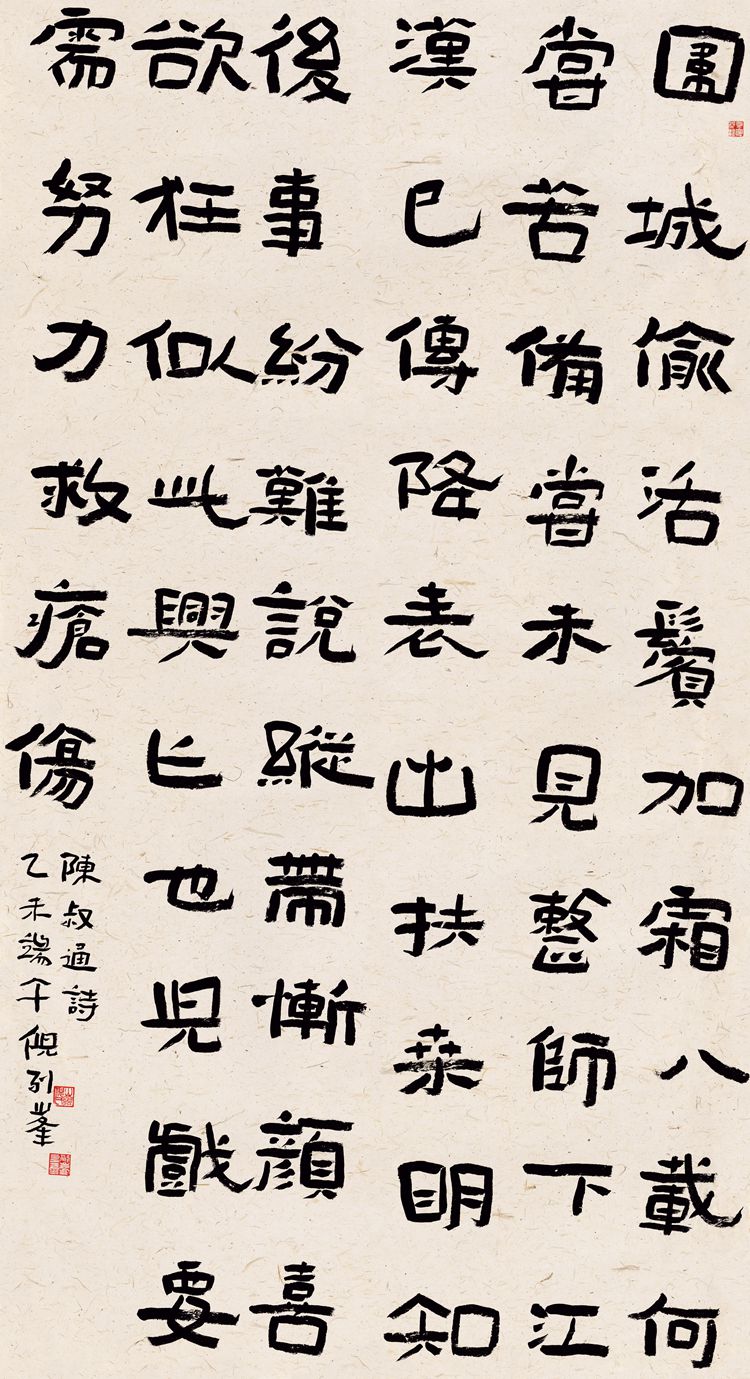 圍城偷活鬢加霜八載何
嘗苦備嘗未見整師下江
漢已傳降表出扶桑明知
後事紛難說縱帶慚顏喜
欲狂似此興亡也兒戲要
需努力救瘡傷
陳叔通詩
乙未端午倪列峯